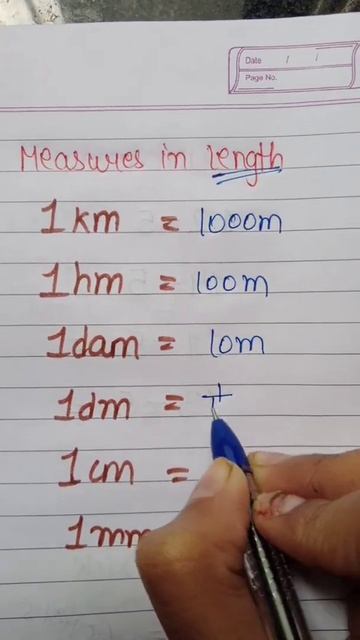 Date / /
Page No.
Measures in length
1 km = 1000m
1 hm = 100m
1 dam = 10m
1 dm =
1 cm =
1 mm